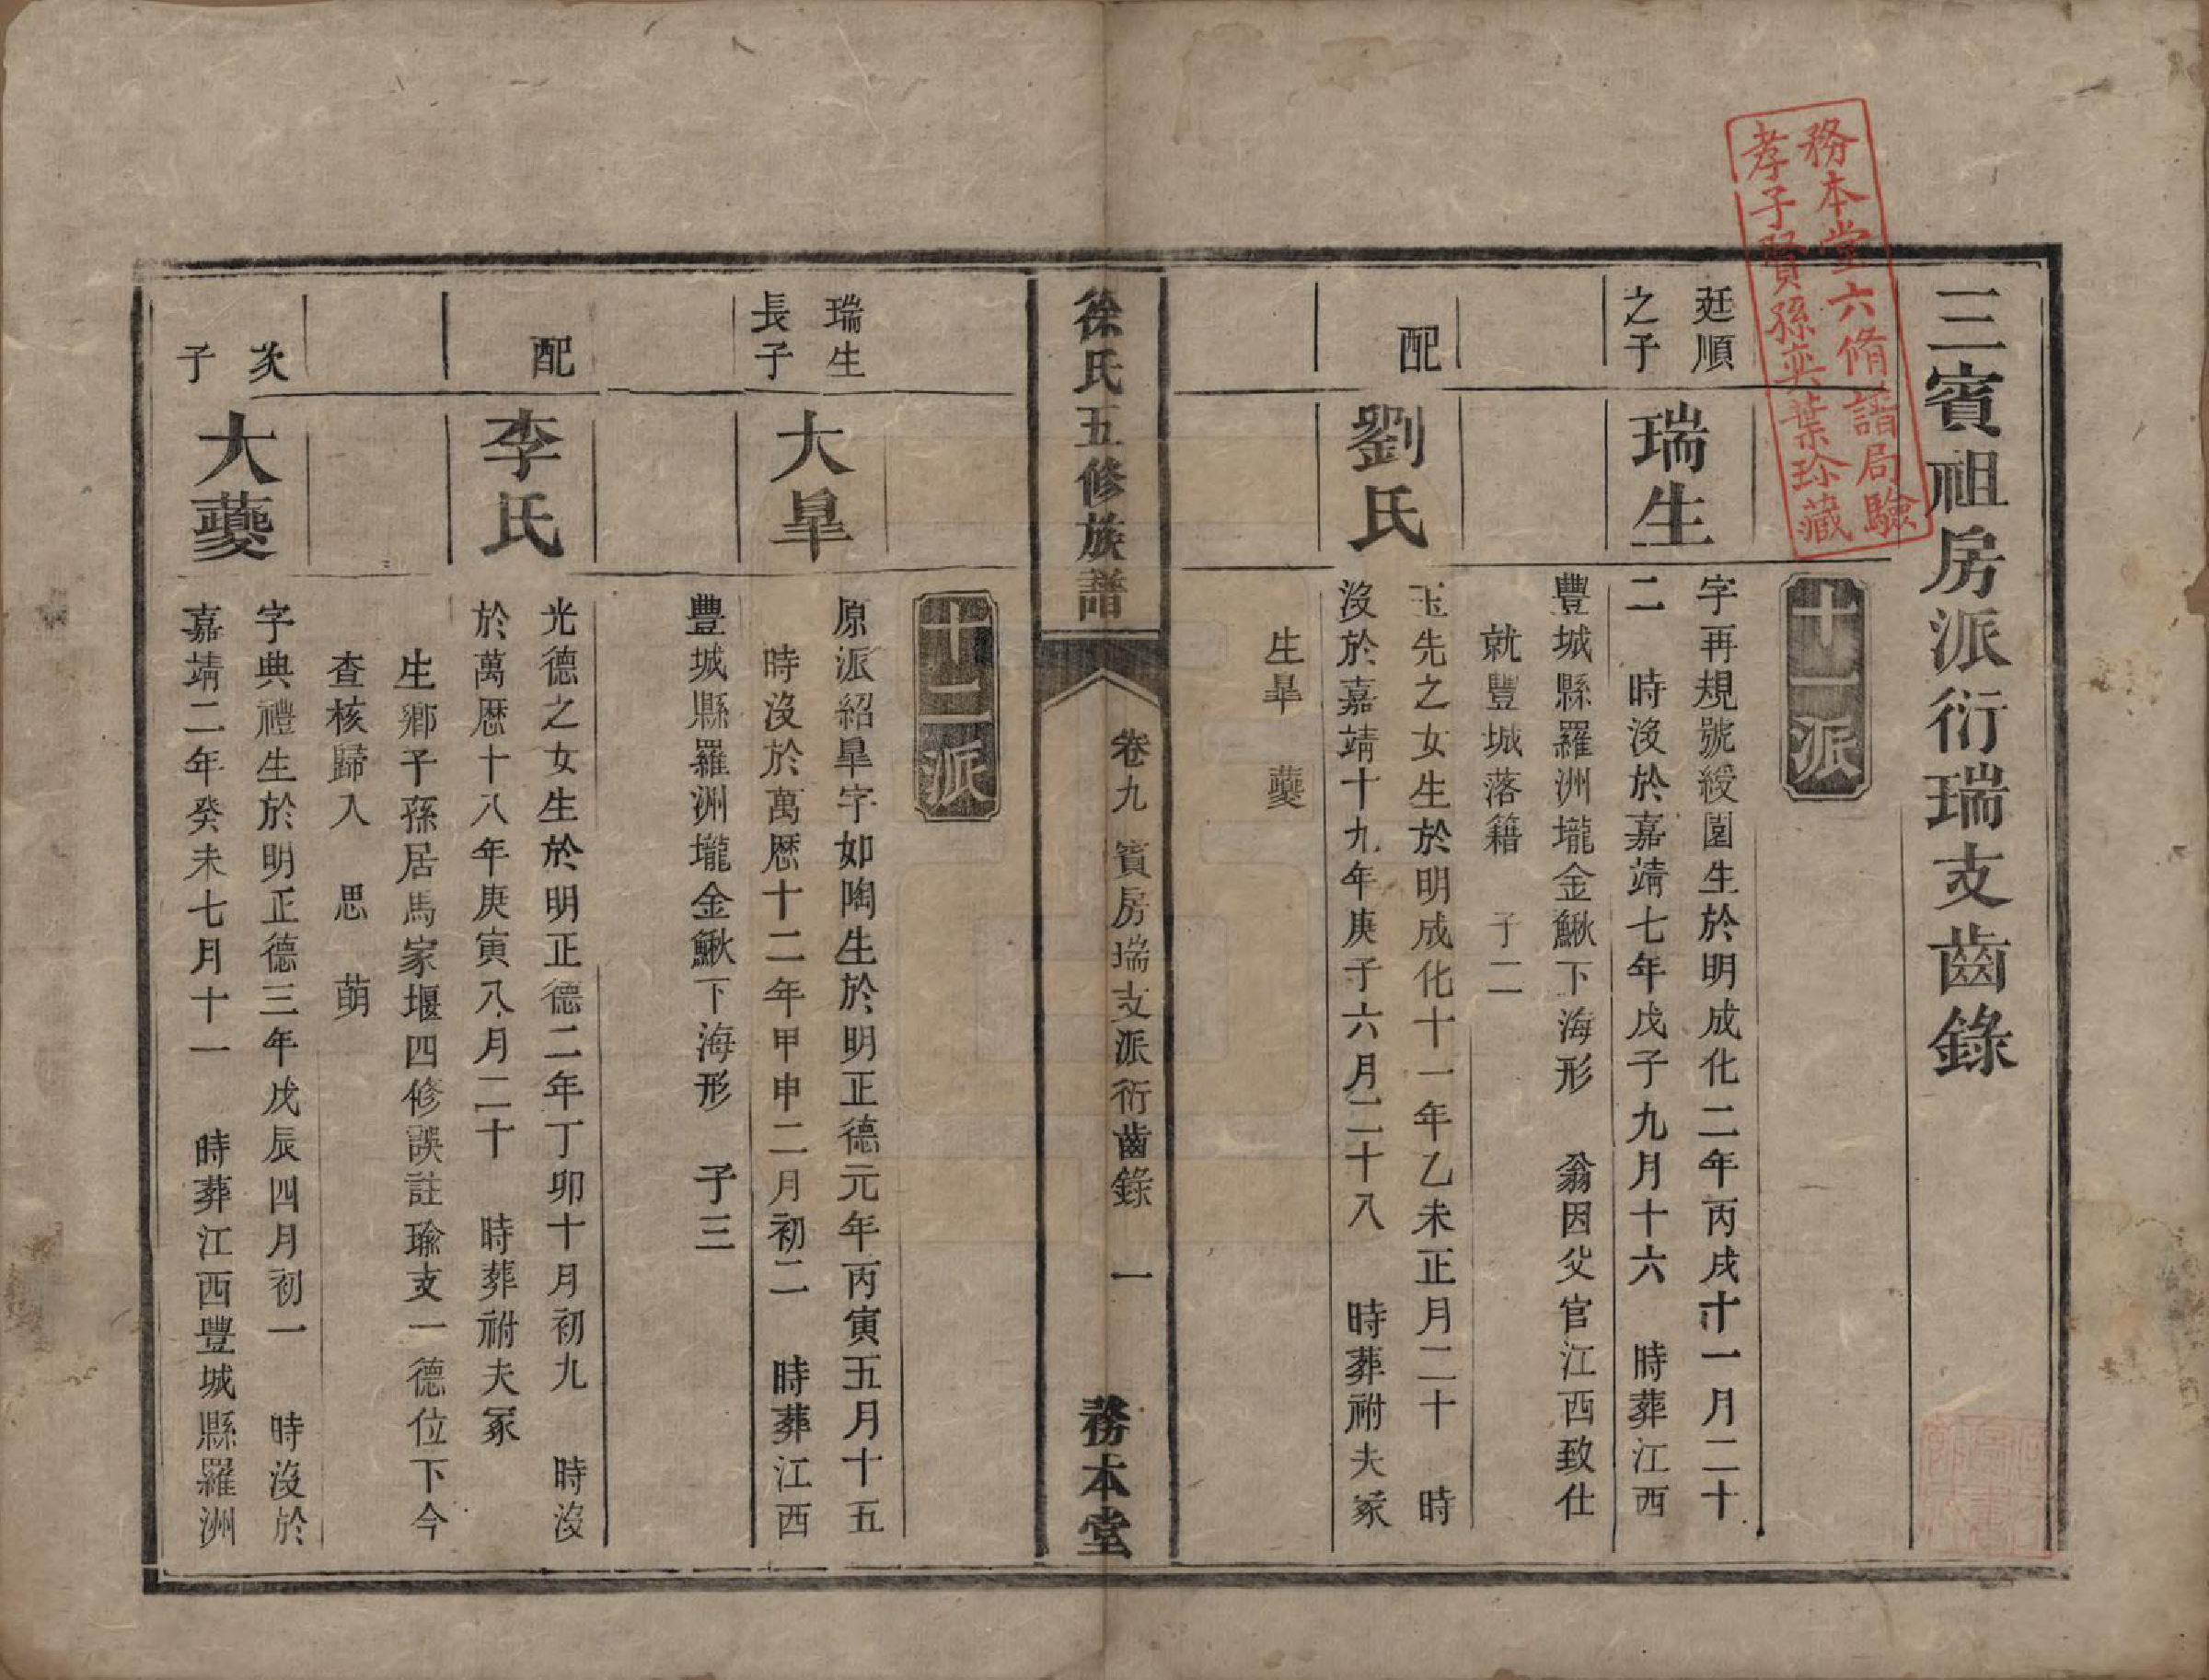 三賓祖房派衍瑞支齒錄
務本堂六脩譜局驗
孝子賢孫奕葉珍藏
十一派
廷順
之子
瑞生
字再規號綬園生於明成化二年丙戌十一月二十
二 時沒於嘉靖七年戊子九月十六 時葬江西
豐城縣羅洲壠金鰍下海形 翁因父官江西致仕
就豐城落籍 子二
配
劉氏
玉先之女生於明成化十一年乙未正月二十 時
沒於嘉靖十九年庚子六月二十八 時葬祔夫冢
生臯 夔
徐氏五修族譜
卷九 賓房瑞支派衍齒錄 一
務本堂
十二派
瑞生
長子
大臯
原派紹臯字如陶生於明正德元年丙寅五月十五
時沒於萬曆十二年甲申二月初二 時葬江西
豐城縣羅洲壠金鰍下海形 子三
配
李氏
光德之女生於明正德二年丁卯十月初九 時沒
於萬曆十八年庚寅八月二十 時葬祔夫冢
生鄉子孫居馬家堰四修誤註瑜支一德位下今
查核歸入 思 萌
次
子
大夔
字典禮生於明正德三年戊辰四月初一 時沒於
嘉靖二年癸未七月十一 時葬江西豐城縣羅洲